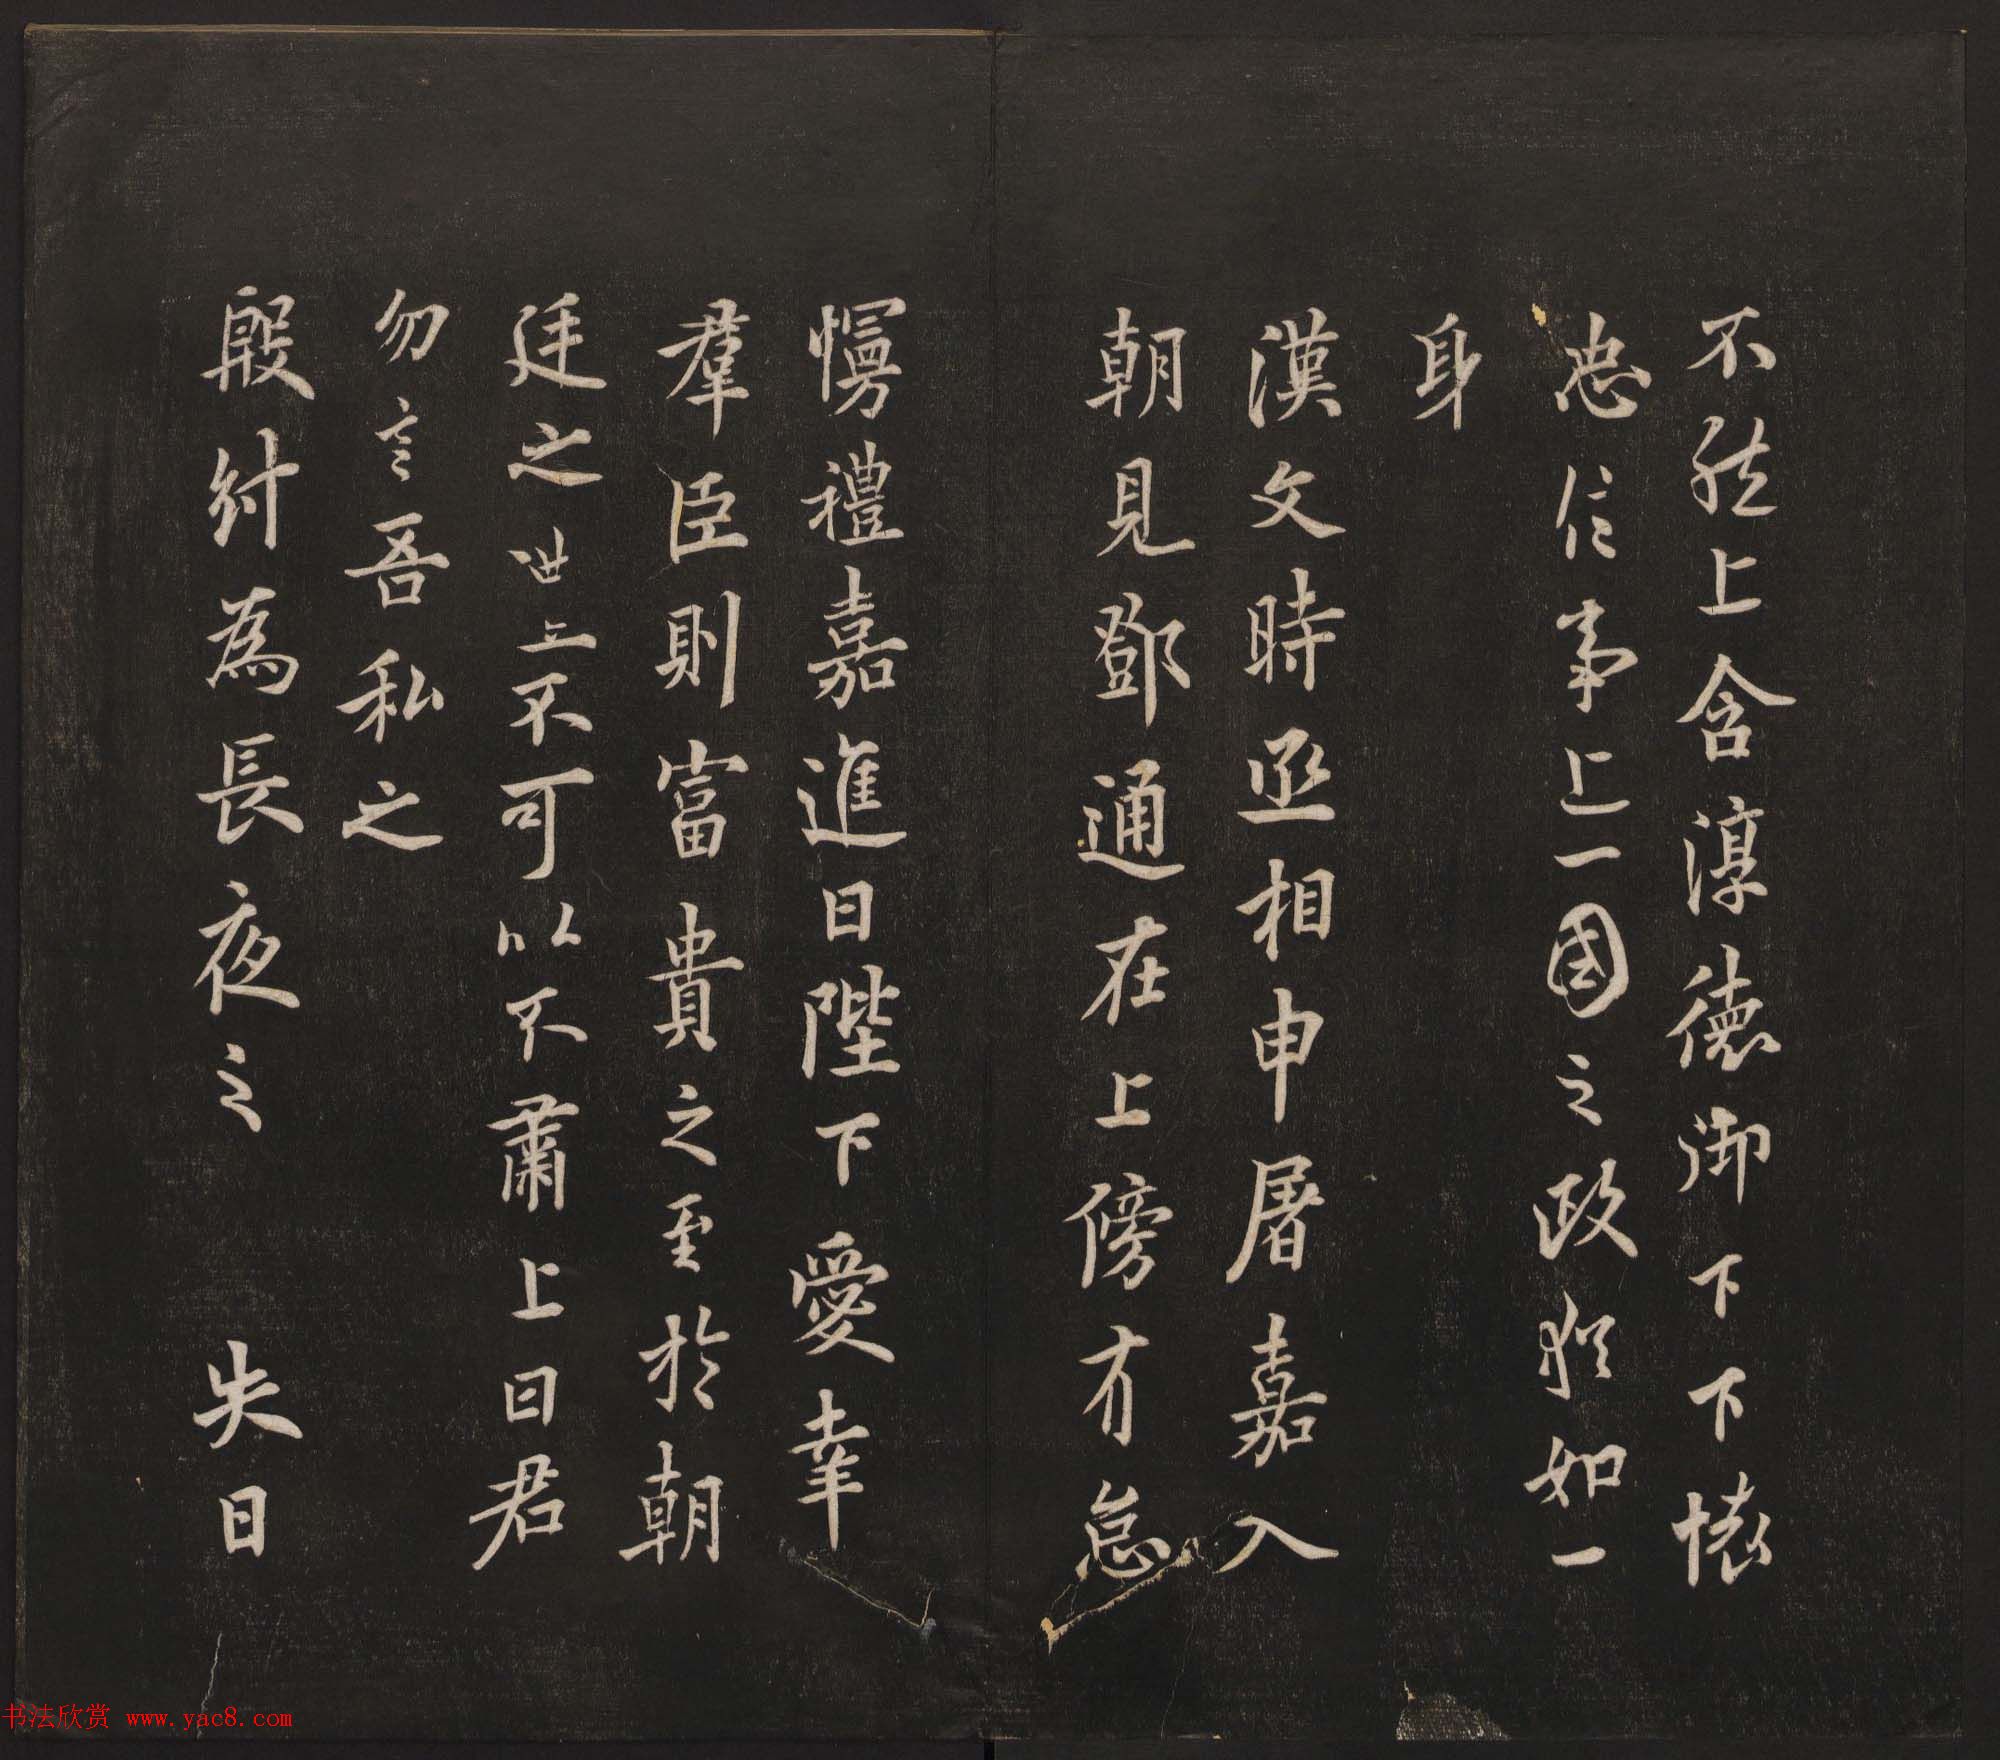 不然上含淳德御下下懐
忠信事上一國之政猶如一
身
漢文時丞相申屠嘉入
朝見鄧通在上傍有怠
慢禮嘉進曰陛下愛幸
羣臣則富貴之至於朝
廷之世上不可以不肅上曰君
勿言吾私之
殷紂為長夜之 失日
书法欣赏 www.yac8.com